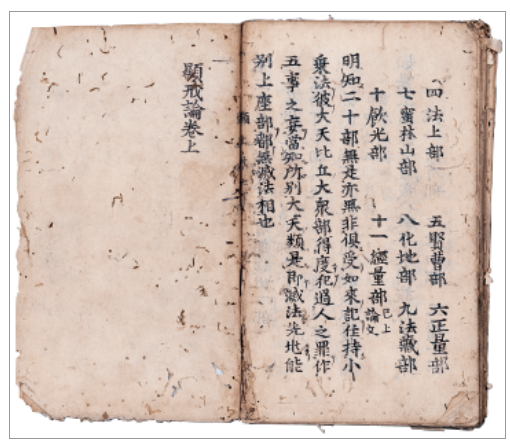 四法上部 五賢曹部 六正量部
七蜜林山部 八化地部 九法藏部
十飮光部 十一經量部 已上論文
明知二十部無是亦無非俱受如來記住持小
乘法彼大天比丘大衆部得度犯過人之罪作
五事之妄當知所別大天類是即滅法先地能
別上座部都無滅法相也
顯戒論卷上